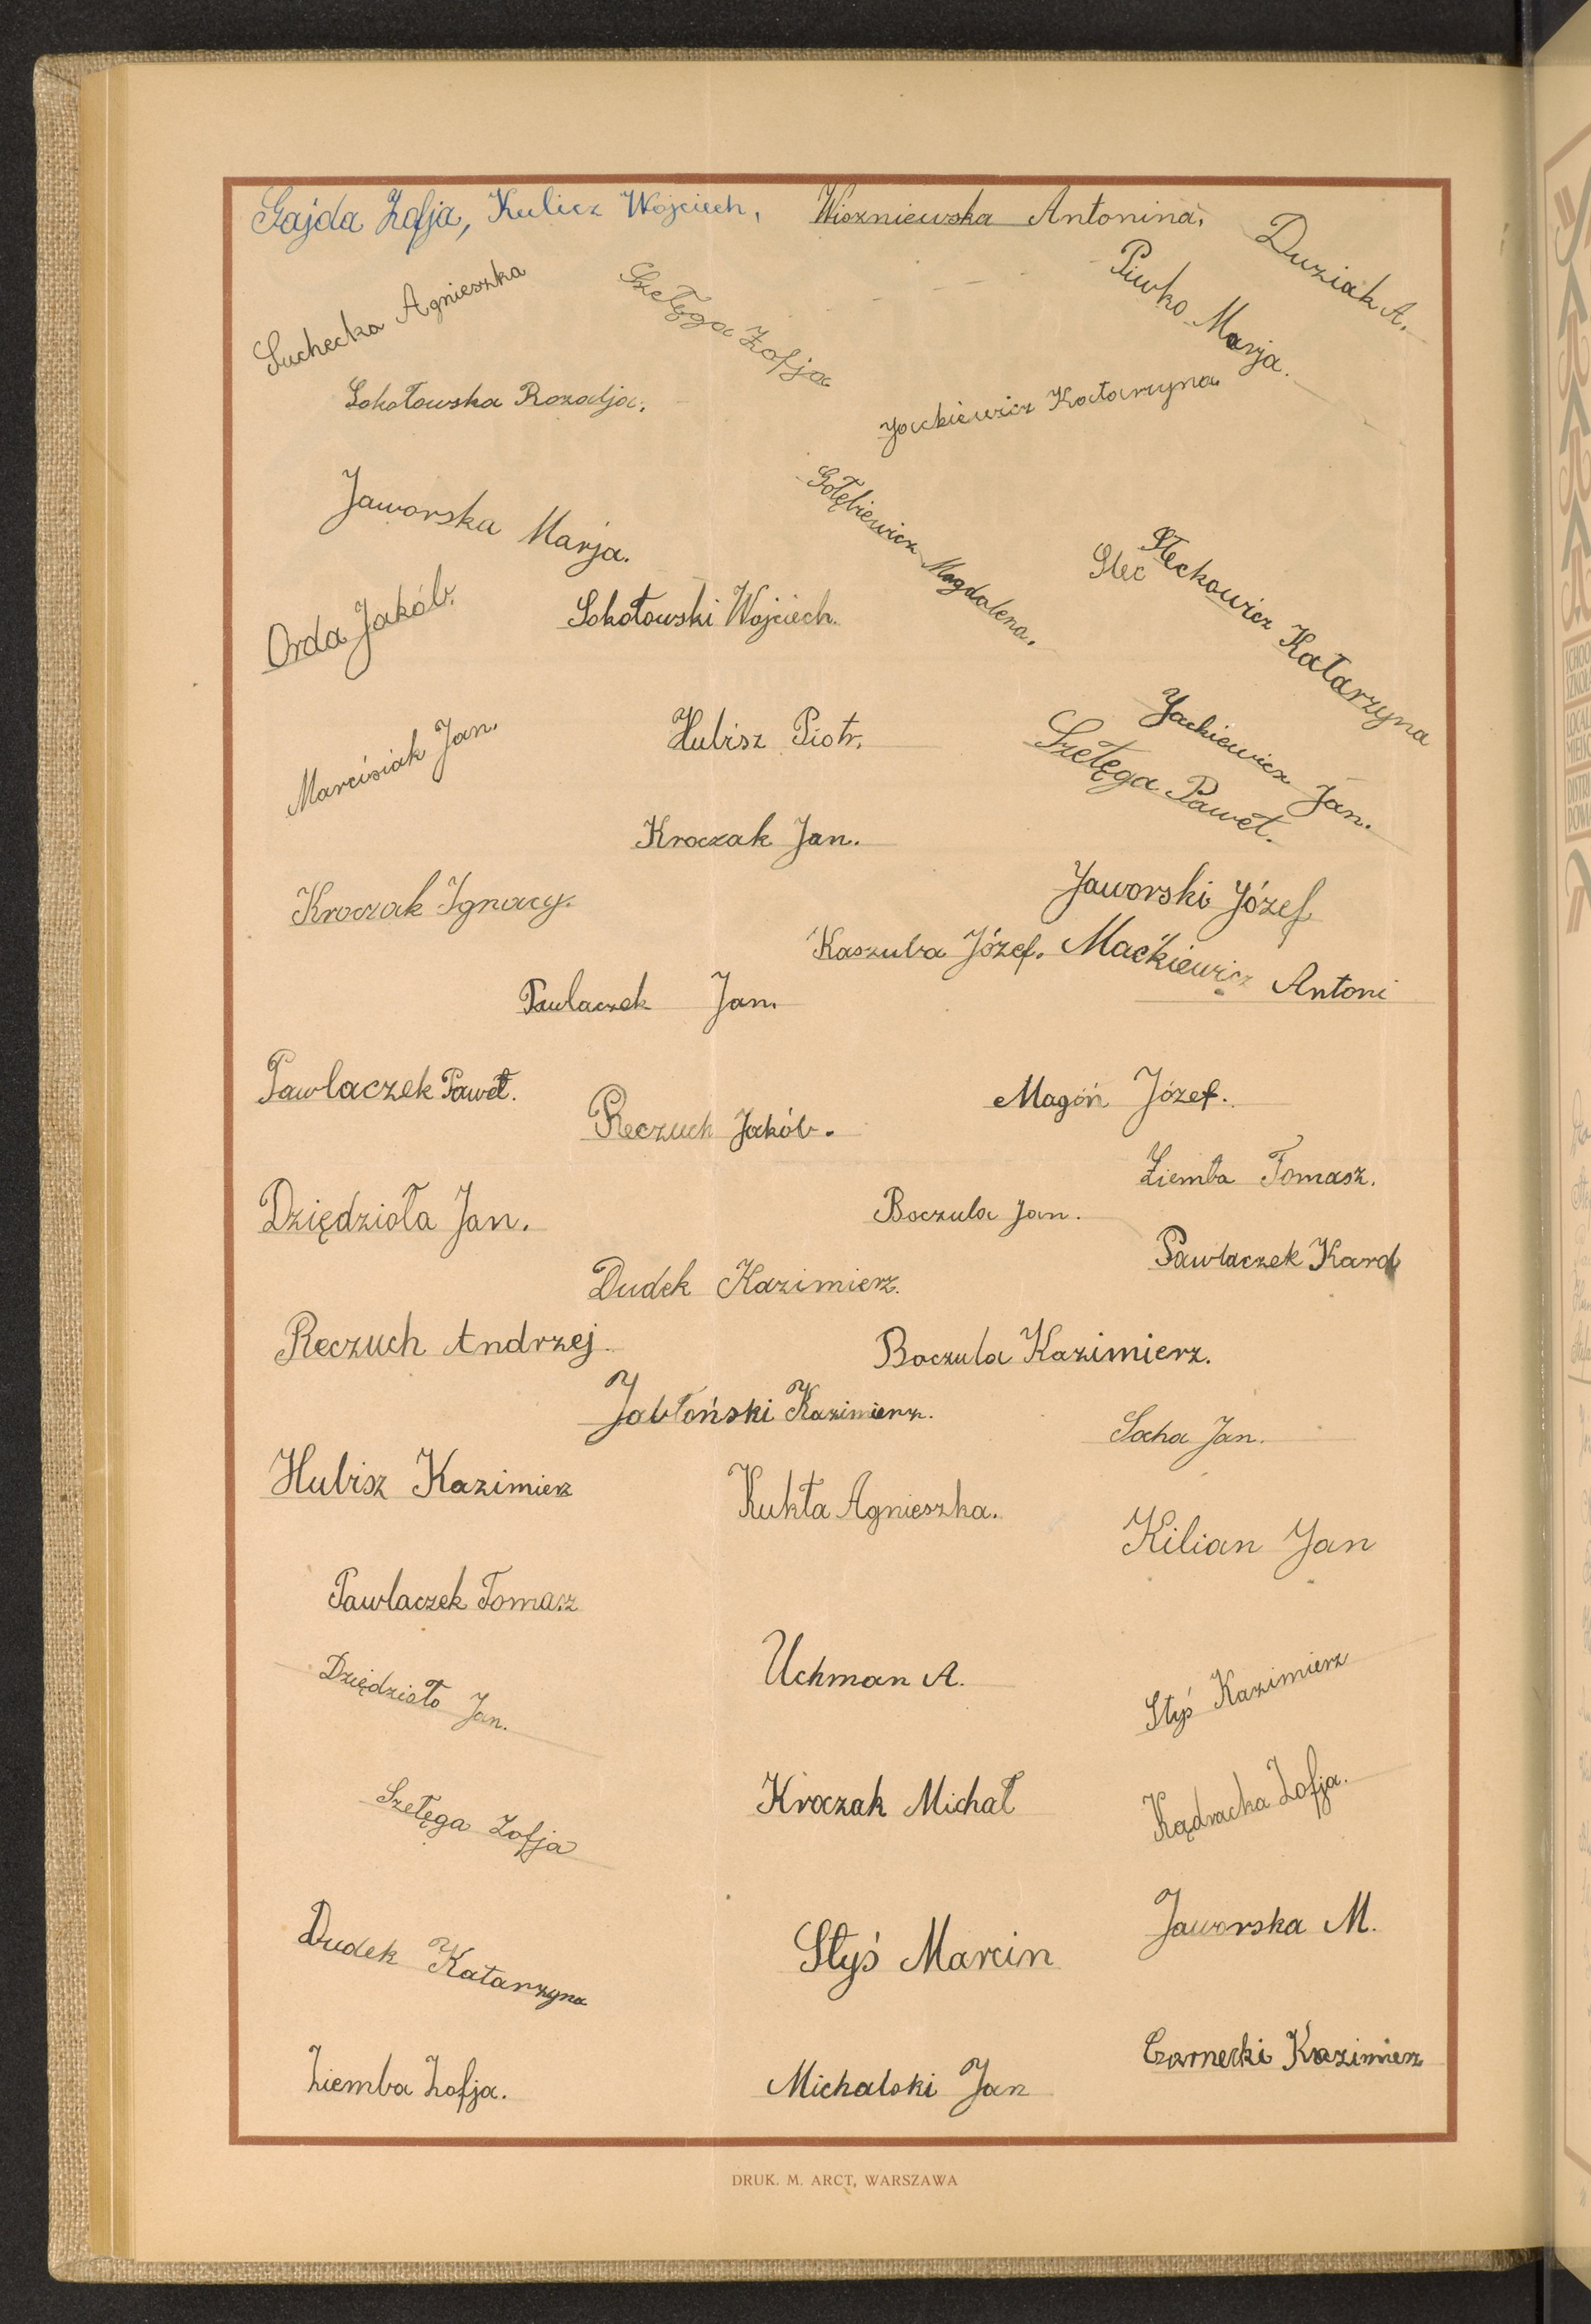 Gajda Zofja, Kulicz Wojciech, Wiozniewska Antonina, Duziak A.
Suchecka Agnieszka
Szełęga Zofja
Piwko Marja.
Sokołowska Rozalja,
Jackiewicz Katarzyna
Jaworska Marja.
Gołębiewicz Magdalena.
Stec
Steckowicz Katarzyna
Orda Jakób.
Sokołowski Wojciech.
Marcisiak Jan.
Hubisz Piotr.
Jackiewicz Jan.
Szełęga Paweł.
Kroczak Jan.
Kroczak Ignacy.
Jaworski Józef
Kaszuba Józef. Maćkiewicz Antoni
Pawlaczek Jan.
Pawlaczek Paweł.
Reczuch Jakób.
Magoń Józef.
Ziemba Tomasz.
Dziędzioła Jan.
Boczula Jan.
Pawlaczek Karol
Dudek Kazimierz.
Reczuch Andrzej
Boczula Kazimierz.
Jabłoński Kazimierz.
Socha Jan.
Hubisz Kazimierz
Kukła Agnieszka.
Kilian Jan
Pawlaczek Tomasz
Dziędzioło Jan.
Uchman A.
Styś Kazimierz
Szełęga Zofja
Kroczak Michał
Kądracka Zofja.
Dudek Katarzyna
Styś Marcin
Jaworska M.
Ziemba Zofja.
Michalski Jan
Czarnecki Kazimierz
DRUK. M. ARCT, WARSZAWA